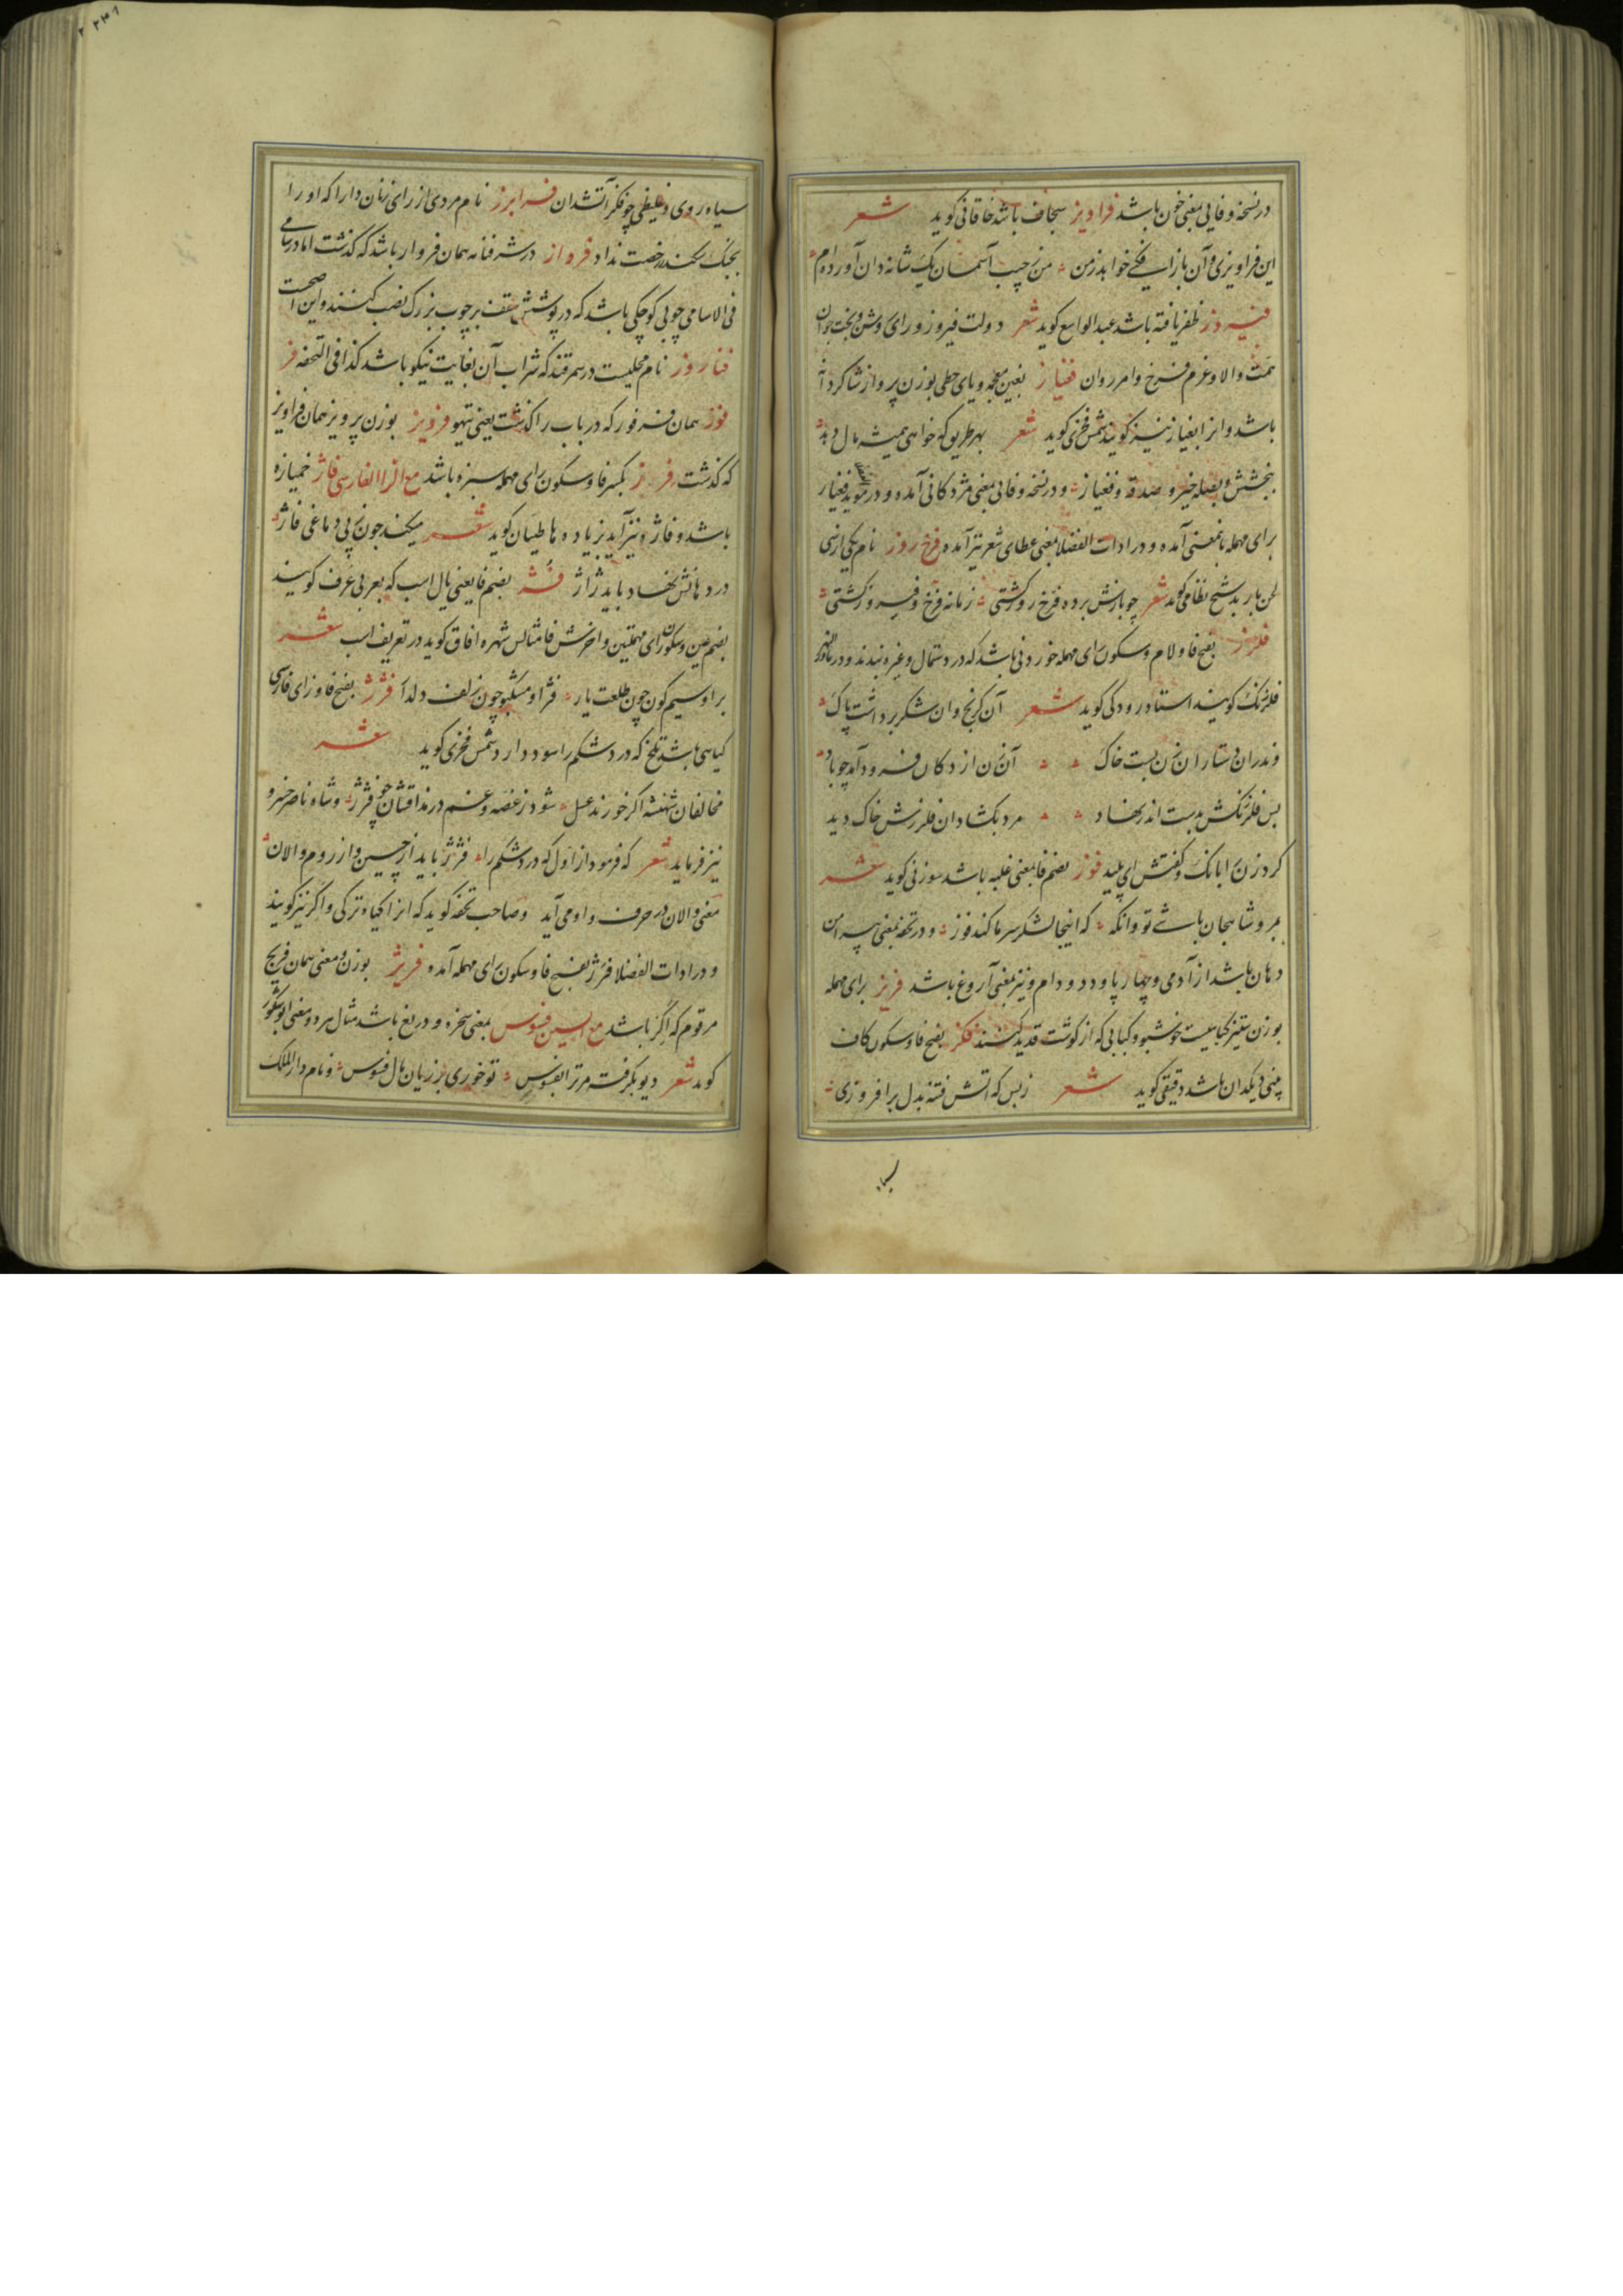 در نسخه وفایی بمعنی خون باشد فراویز سجاف باشد خاقانی کوید شعر
این فراویزی و آن باز افکنی خواهد ز من من ز جیب آسمان یک شانه دان آورده‌ام
فیروز ظفر یافته باشد عبدالواسع کوید شعر دولت فیروز و رای روشن و بخت جوان
همت والا و عزم فرخ و امر روان فغیاز بغین معجمه و یای حطی بوزن پرواز شاکردانه
باشد و انرا بغیاز نیز کویند شمس فخری کوید شعر بهر طریق که خواهی همیشه مال دهد
ببخشش و بصله خیر و صدقه و فغیاز و در نسخه وفائی بمعنی مژدکانی آمده و در موید فغیار
برای مهمله باینمعنی آمده و در ادات الفضلا بمعنی عطای شعر نیز آمده فرخ روز نام یکی از سی
لحن باربد شیخ نظامی کوید شعر چو بازش برده فرخ روز کشتی زمانه فرخ و فیروز کشتی
فلرز بفتح فا و لام و سکون رای مهمله خوردنی باشد که در دستمال و غیره بندند و در ماوراءالنهر
فلرزنک کویند استاد رودکی کوید شعر آن کرنج و ان شکر برداشت پاک
وندران دستار آن زن بست خاک آن زن از دکان فرود آمد چو باد
پس فلرزنکش بدست اندر نهاد مرد بکشاد ان فلرزش خاک دید
کرد زن را بانک و کفتش ای پلید فوز بضم فا بمعنی غلبه باشد سوزنی کوید شعر
بمرو شاهجان باشی تو وانکه که اینجا لشکر سرما کند فوز و در تحفه بمعنی پیرامن
دهان باشد از آدمی و چهارپا و دد و دام و نیز بمعنی آروغ باشد فریز برای مهمله
بوزن تیز کیاهیست خوشبو و کبابی که از کوشت قدید کنند فکز بفتح فا و سکون کاف
یعنی دیکدان باشد دقیقی کوید شعر ز بس که آتش فتنه بدل برافروزی
سیاه‌روی و غلیظی چو فکز آتشدان فرابرز نام مردی از رای زنان دارا که او را
بجنک سکندر رخصت نداد فرواز در شرفنامه همان فروار باشد که کذشت اما در سامی
فی الاسامی چوبی کوچکی باشد که در پوشش سقف بر چوب بزرک نصب کنند و این اصحست
فنا روز نام محلیست در سمرقند که شراب آن بغایت نیکو باشد کذا فی التحفه فر
فوز همان فرفور که در باب را کذشت یعنی تیهو فرویز بوزن پرویز همان فراویز
که کذشت فرز بکسر فا و سکون رای مهمله سبزه باشد مع الزا الفارسی فاژ خمیازه
باشد و فاژه نیز آید بزیاده ها طیان کوید شعر میکند چون ز بی دماغی فاژ
در دهانش نهاد باید ژاژ فش بضم فا یعنی یال اسب که بعربی عرف کویند
بضم عین و سکون رای مهملتین و اخرش فا مثالش شهره افاق کوید در تعریف اسب شعر
بر او سیم کون چون طلعت یار فژ او مشکبو چون زلف دلدار فژژ بفتح فا و زای فارسی
کیاهی باشد تلخ که درد شکم را سود دارد شمس فخری کوید شعر
مخالفان شهنشه اکر خورند عسل شود ز غصه و غم در مذاقشان چو فژژ و شاه ناصر خسرو
نیز فرماید شعر که فرمود از اول که درد شکم را فژژ باید از چین و از روم والان
معنی والان در حرف واو می آید و صاحب تحفه کوید که انرا کیاه ترکی و اکر نیز کویند
و در ادات الفضلا فرژ بفتح فا و سکون رای مهمله آمده فریژ بوزن و معنی همان فریج
مرقوم که اکر باشد مع السین فسوس بمعنی سخره و دریغ باشد مثال هر دو معنی ابوشکور
کوید شعر دیو بکرفته مر ترا بفسوس تو خوری بر زیان مال فسوس و نام دارالملک